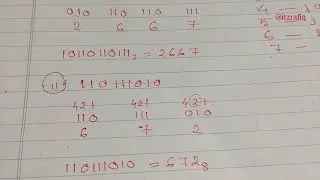 010 110 110 111
2 6 6 7
4 —
@itzrafiq
5
6 —
7 —
10110110111₂ = 2667
ii) 110111010
421 421 421
110 111 010
6 7 2
110111010 = 672₈